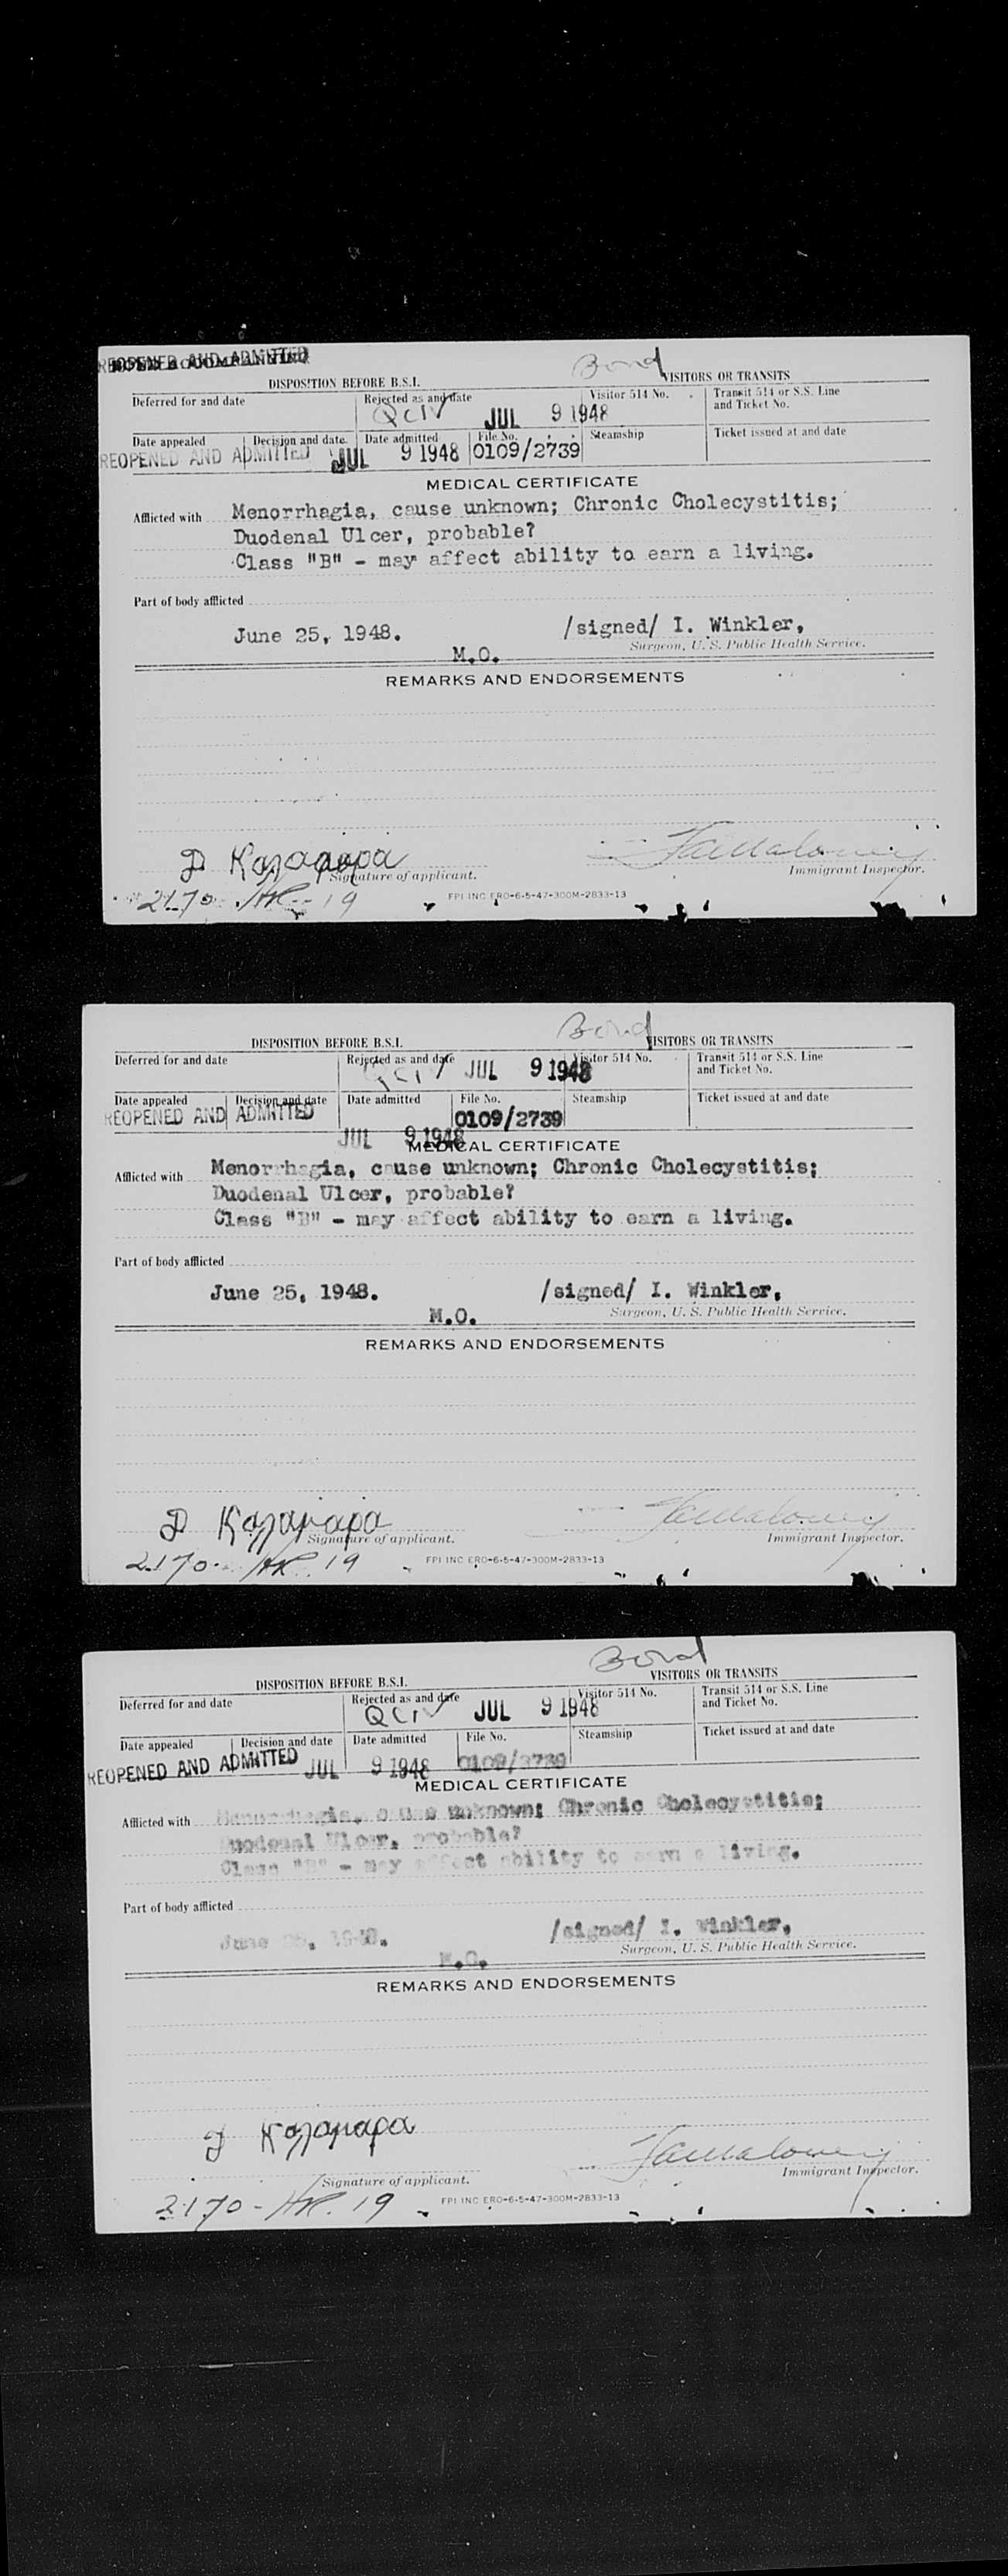 REOPENED AND ADMITTED
Bond
DISPOSITION BEFORE B.S.I.
VISITORS OR TRANSITS
Deferred for and date
Rejected as and date
Visitor 514 No.
Transit 514 or S.S. Line and Ticket No.
JUL 9 1948
Date appealed
Decision and date
Date admitted
File No.
Steamship
Ticket issued at and date
REOPENED AND ADMITTED JUL 9 1948 0109/2739
MEDICAL CERTIFICATE
Afflicted with Menorrhagia, cause unknown; Chronic Cholecystitis;
Duodenal Ulcer, probable?
Class "B" - may affect ability to earn a living.
Part of body afflicted
June 25, 1948.
/signed/ I. Winkler,
M.O.
Surgeon, U. S. Public Health Service.
REMARKS AND ENDORSEMENTS
Signature of applicant.
Immigrant Inspector.
2170 19
FPI INC ERO-6-5-47-300M-2833-13
Bond
DISPOSITION BEFORE B.S.I.
VISITORS OR TRANSITS
Deferred for and date
Rejected as and date
Visitor 514 No.
Transit 514 or S.S. Line and Ticket No.
JUL 9 1948
Date appealed
Decision and date
Date admitted
File No.
Steamship
Ticket issued at and date
REOPENED AND ADMITTED
0109/2739
JUL 9 1948
MEDICAL CERTIFICATE
Afflicted with Menorrhagia, cause unknown; Chronic Cholecystitis;
Duodenal Ulcer, probable?
Class "B" - may affect ability to earn a living.
Part of body afflicted
June 25, 1948.
/signed/ I. Winkler,
M.O.
Surgeon, U. S. Public Health Service.
REMARKS AND ENDORSEMENTS
Signature of applicant.
Immigrant Inspector.
2170 19
FPI INC ERO-6-5-47-300M-2833-13
Bond
DISPOSITION BEFORE B.S.I.
VISITORS OR TRANSITS
Deferred for and date
Rejected as and date
Visitor 514 No.
Transit 514 or S.S. Line and Ticket No.
JUL 9 1948
Date appealed
Decision and date
Date admitted
File No.
Steamship
Ticket issued at and date
REOPENED AND ADMITTED JUL 9 1948 0109/2739
MEDICAL CERTIFICATE
Afflicted with Menorrhagia, cause unknown; Chronic Cholecystitis;
Duodenal Ulcer, probable?
Class "B" - may affect ability to earn a living.
Part of body afflicted
June 25, 1948.
/signed/ I. Winkler,
M.O.
Surgeon, U. S. Public Health Service.
REMARKS AND ENDORSEMENTS
Signature of applicant.
Immigrant Inspector.
2170 - 19
FPI INC ERO-6-5-47-300M-2833-13